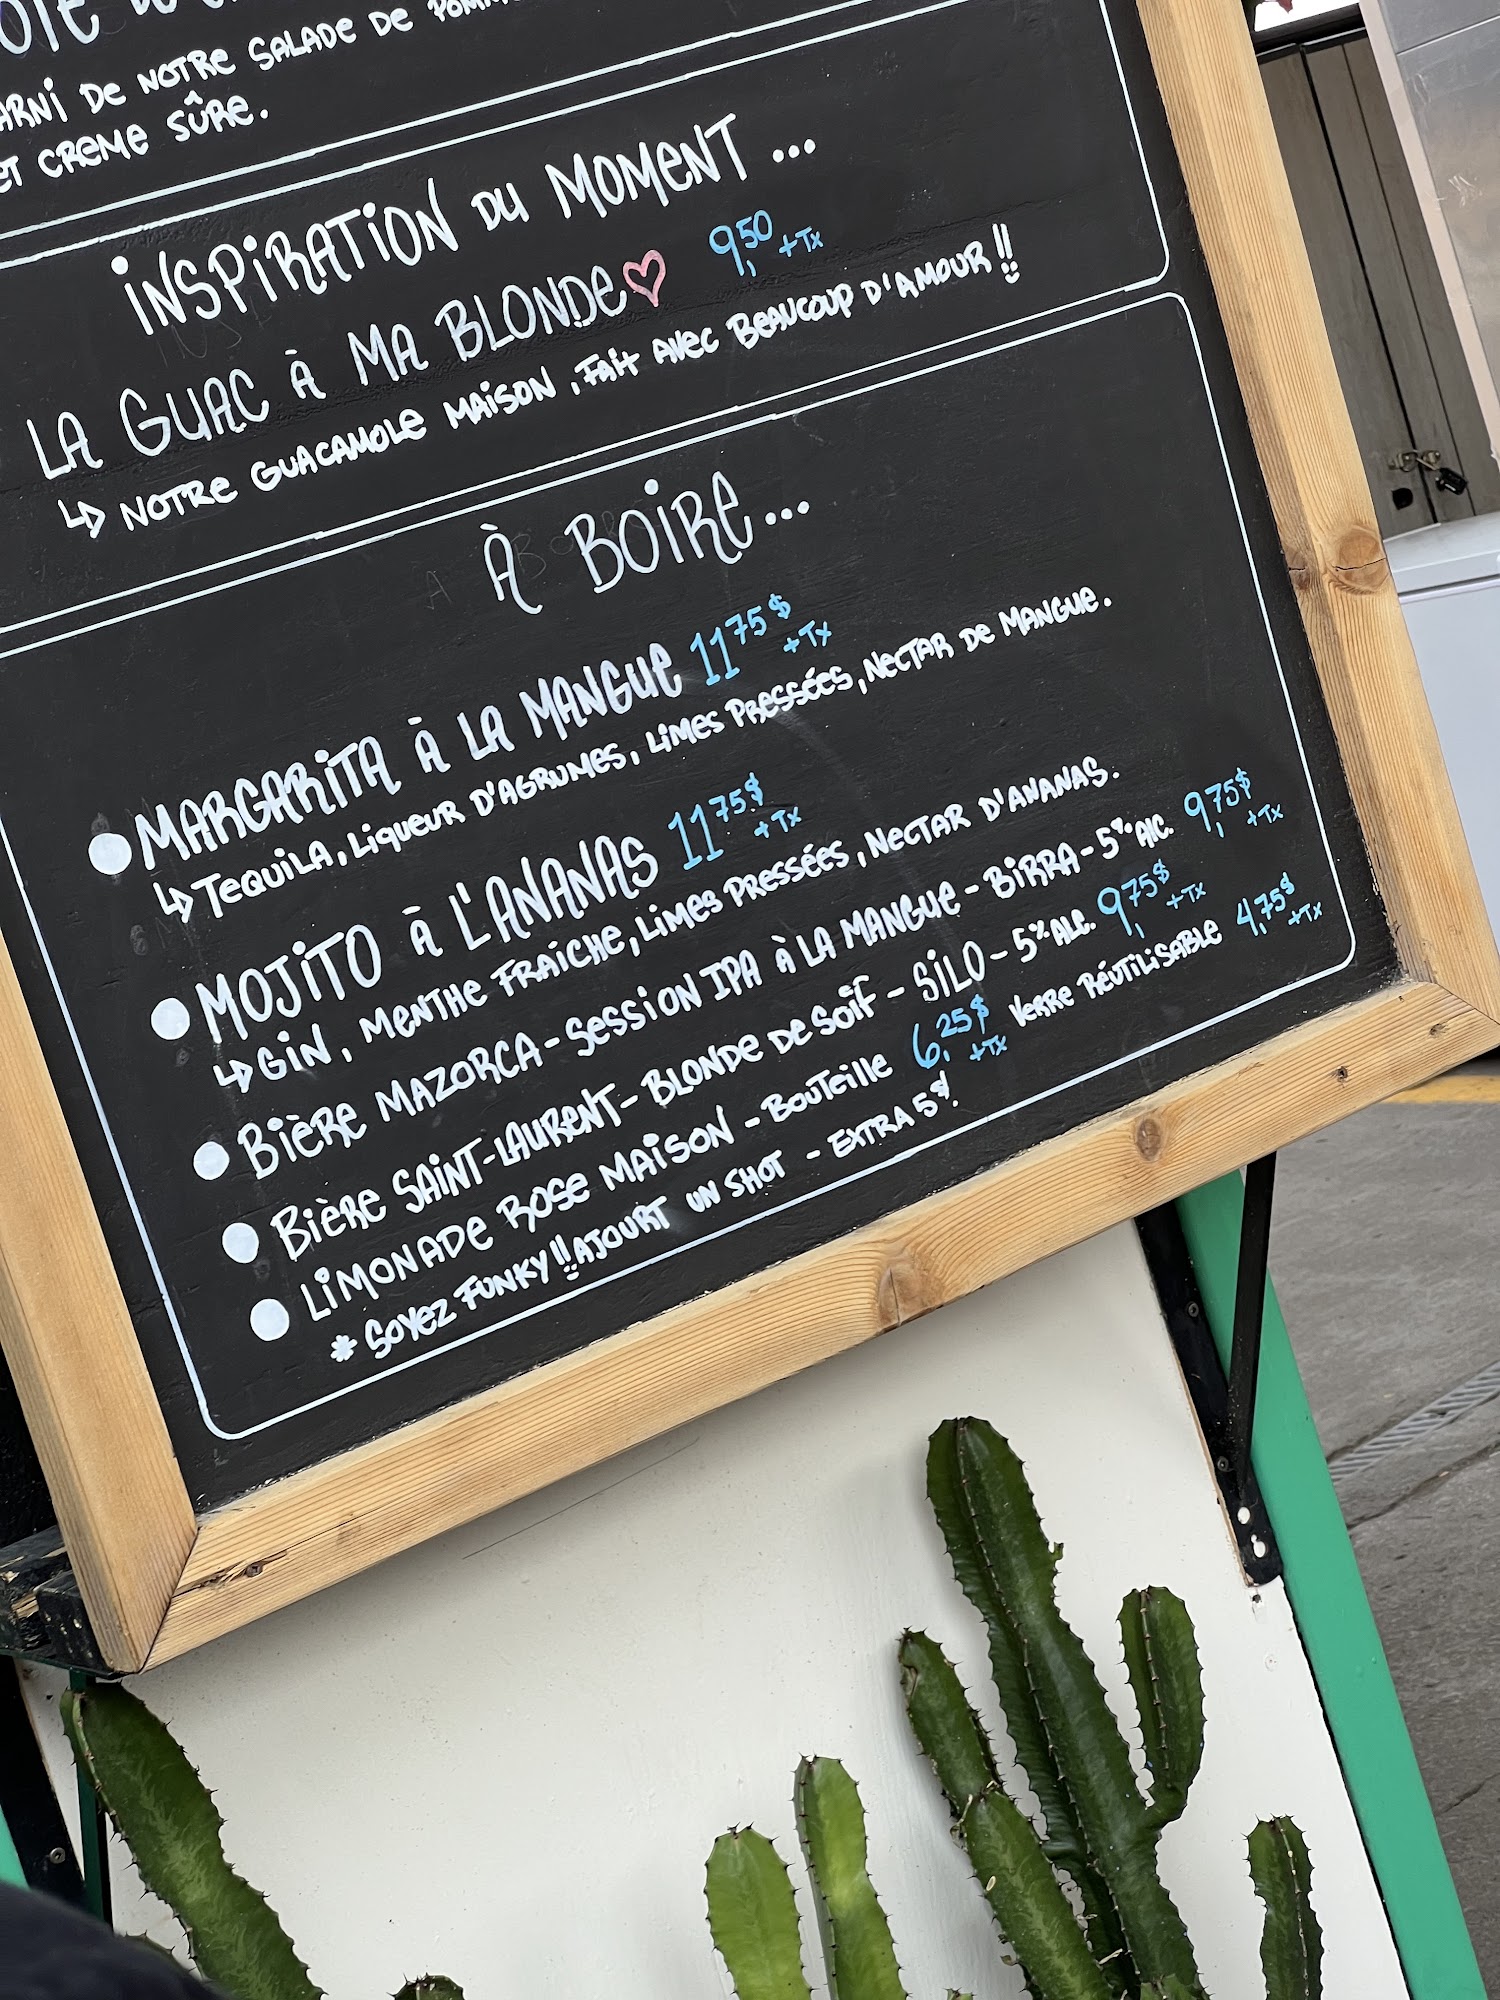 ARNI DE NOTRE SALADE DE
ET CREME SÛRE.
INSPIRATION DU MOMENT...
LA GUAC À MA BLONDE♡ 9,50 +Tx
↳ NOTRE GUACAMOLE MAISON, FAIT AVEC BEAUCOUP D'AMOUR!!
À BOIRE...
● MARGARITA À LA MANGUE 11 75$ +Tx
↳ TEQUILA, LIQUEUR D'AGRUMES, LIMES PRESSÉES, NECTAR DE MANGUE.
● MOJITO À L'ANANAS 11 75$ +Tx
↳ GIN, MENTHE FRAÎCHE, LIMES PRESSÉES, NECTAR D'ANANAS.
● BIÈRE MAZORCA - SESSION IPA À LA MANGUE - BIRRA - 5% ALC. 9,75$ +Tx
● BIÈRE SAINT-LAURENT - BLONDE DE SOIF - SILO - 5% ALC. 9,75$ +Tx
● LIMONADE ROSE MAISON - BOUTEILLE 6,25$ +Tx VERRE RÉUTILISABLE 4,75$ +Tx
* SOYEZ FUNKY!! AJOURT UN SHOT - EXTRA 5$!